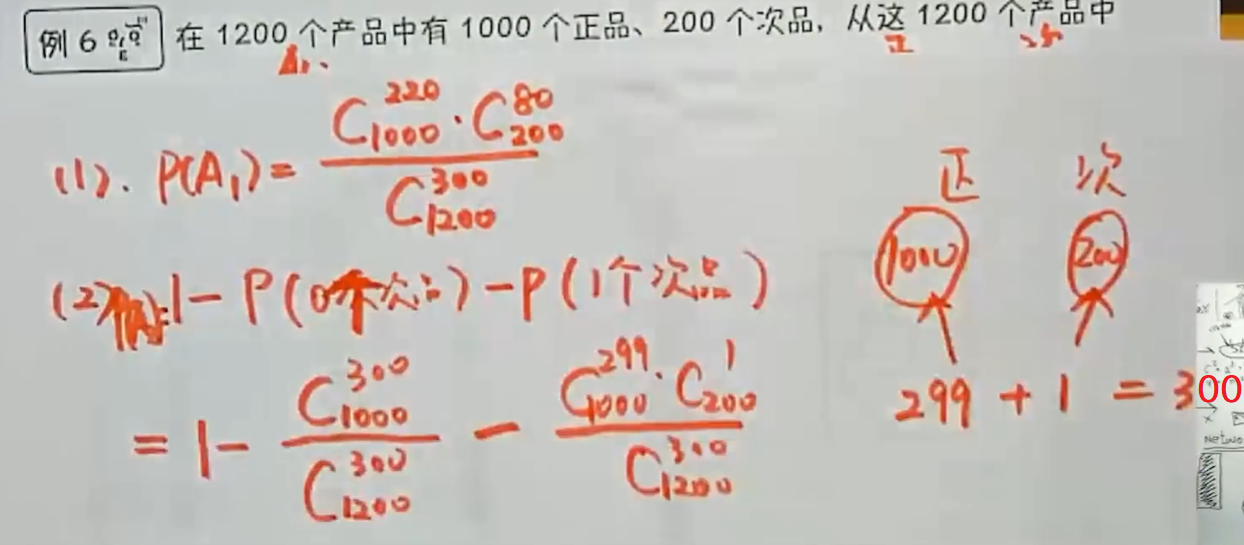 例 6 在 1200 个产品中有 1000 个正品、200 个次品，从这 1200 个产品中
A₁. 正 次
(1). P(A₁) = (C₁₀₀₀²²⁰ · C₂₀₀⁸⁰) / C₁₂₀₀³⁰⁰
正 次
1000 200
(2) = 1 - P(0个次品) - P(1个次品)
= 1 - C₁₀₀₀³⁰⁰ / C₁₂₀₀³⁰⁰ - (C₁₀₀₀²⁹⁹ · C₂₀₀¹) / C₁₂₀₀³⁰⁰
299 + 1 = 300
Netwo